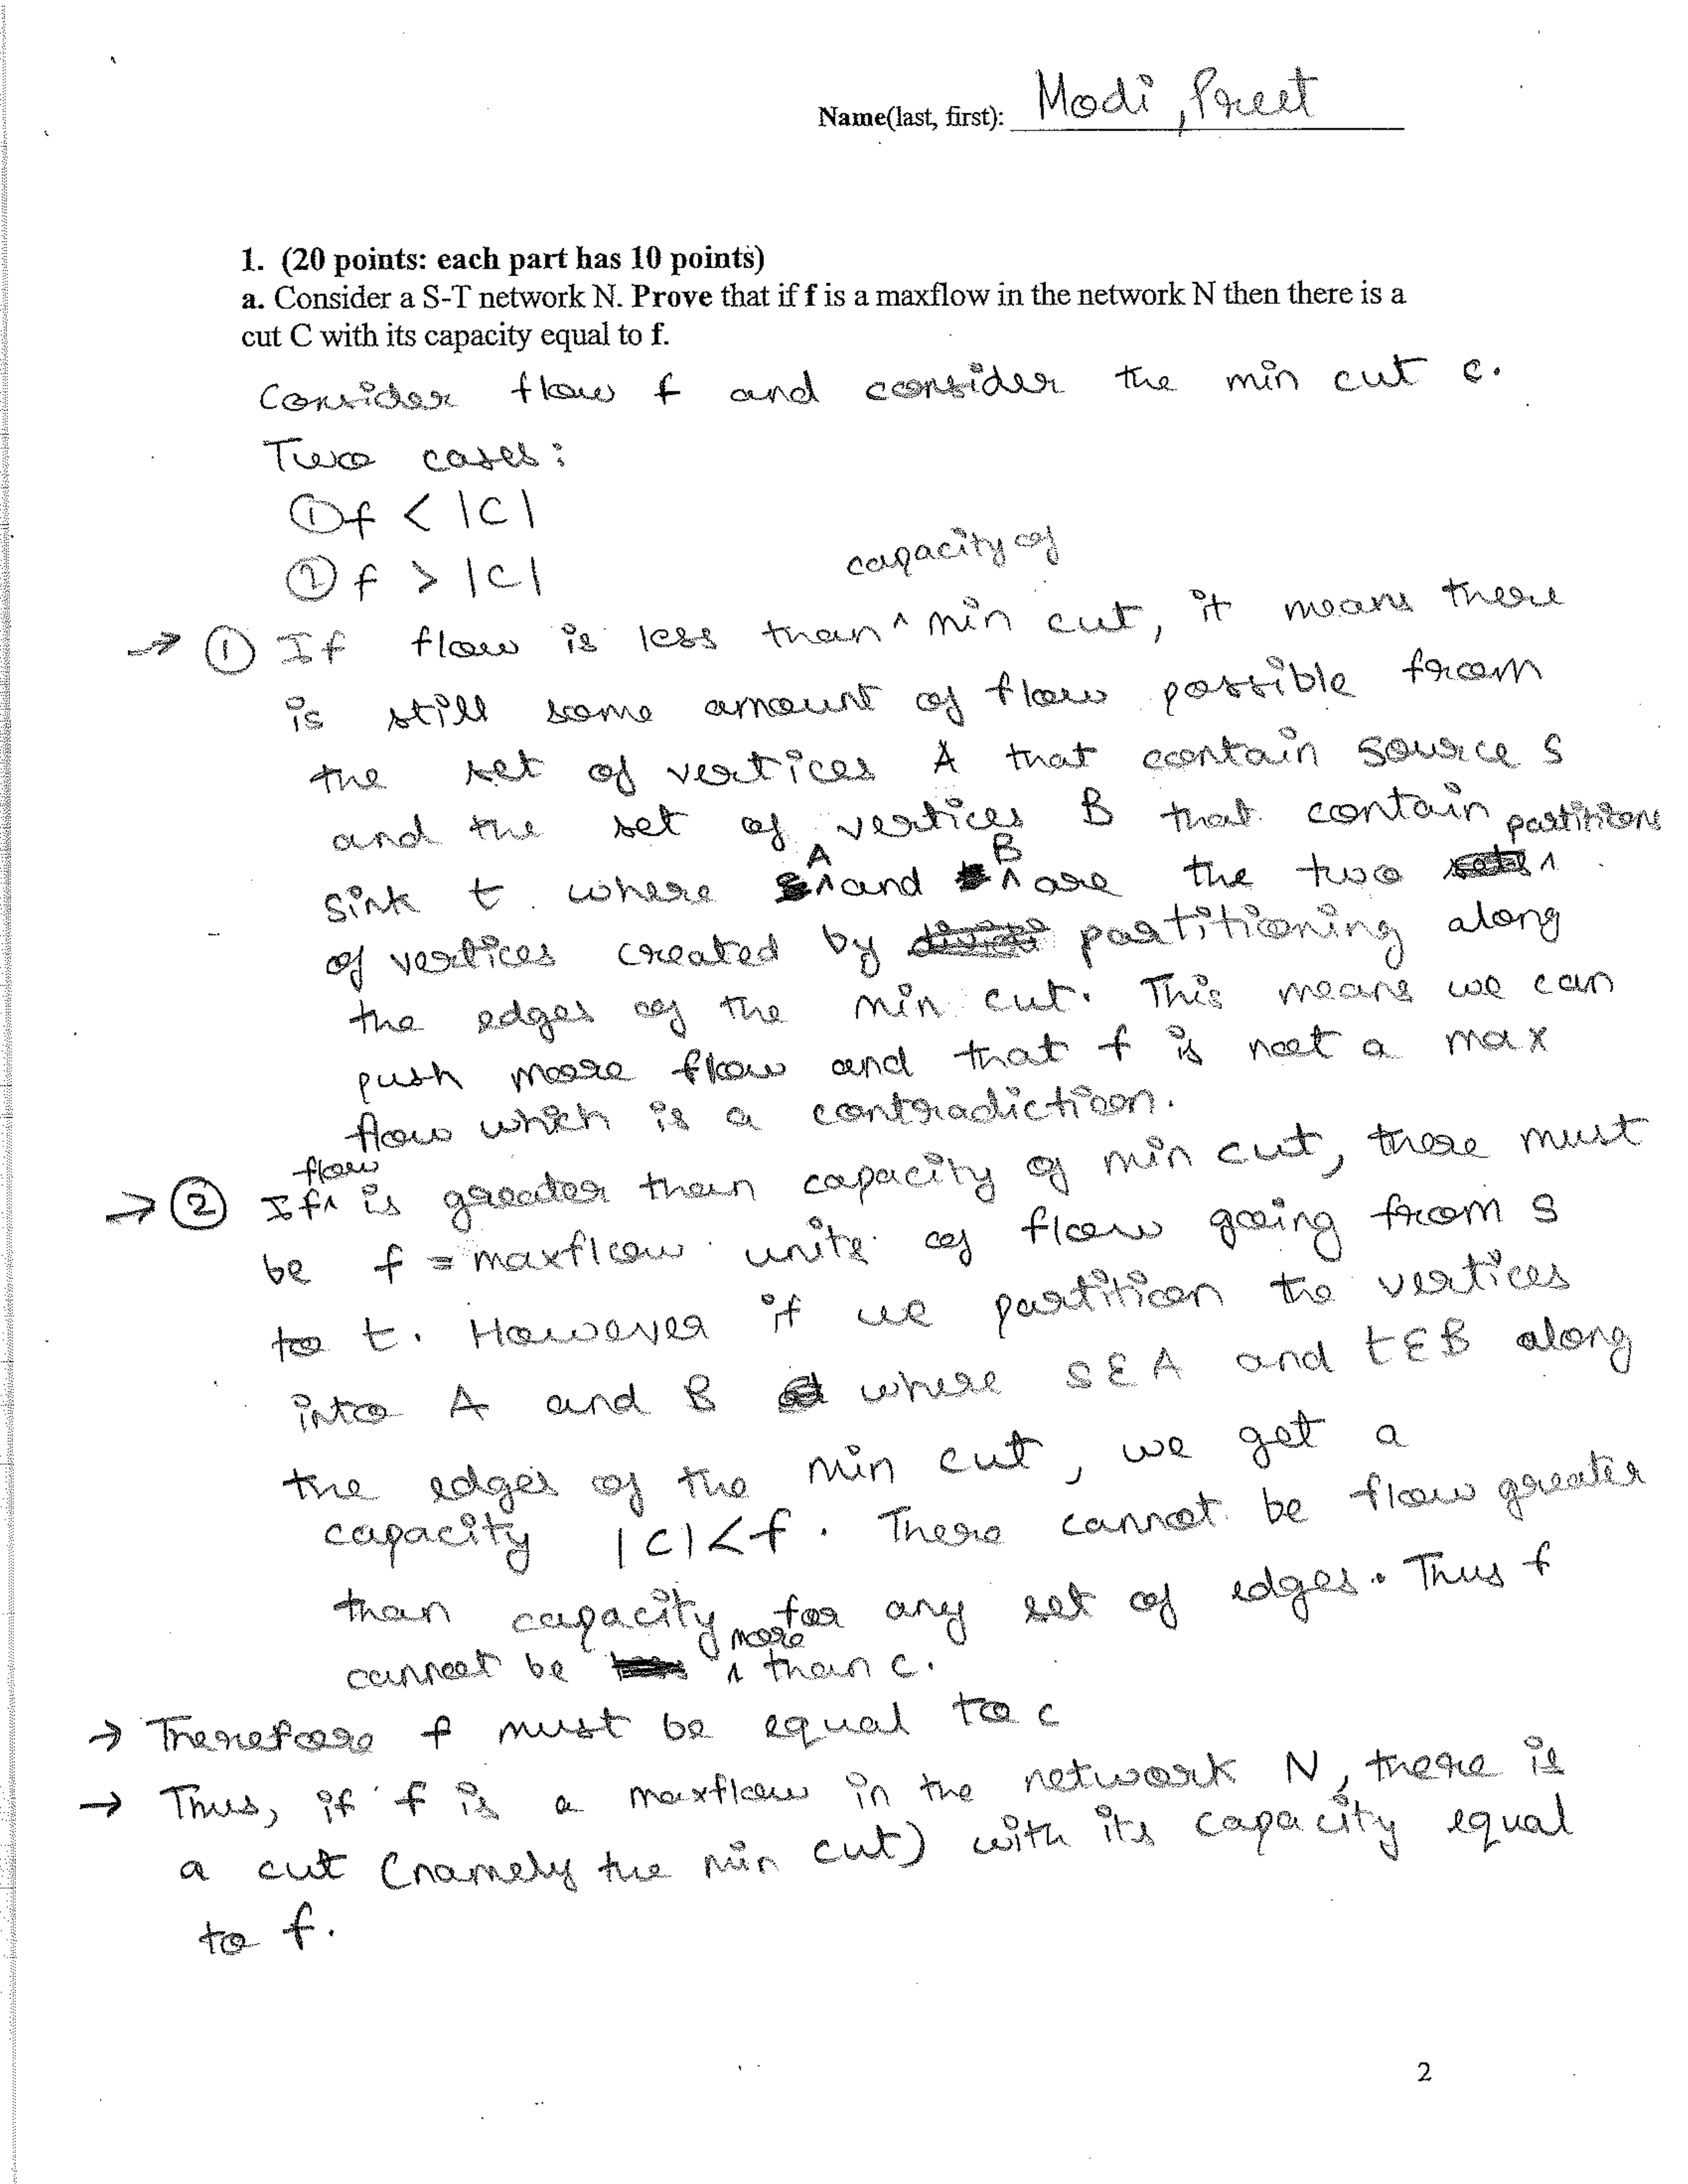 Name(last, first): Modi, Preet
1. (20 points: each part has 10 points)
a. Consider a S-T network N. Prove that if f is a maxflow in the network N then there is a
cut C with its capacity equal to f.
Consider flow f and consider the min cut c.
Two cases:
① f < |C|
② f > |C|
→ ① If flow is less than ^ capacity of min cut, it means there
is still some amount of flow possible from
the set of vertices A that contain source S
and the set of vertices B that contain
sink t where ^ A and ^ B are the two ^ partitions
of vertices created by partitioning along
the edges of the min cut. This means we can
push more flow and that f is not a max
flow which is a contradiction.
→ ② If ^ flow is greater than capacity of min cut, there must
be f = maxflow units of flow going from S
to t. However if we partition the vertices
into A and B where S ∈ A and t ∈ B along
the edges of the min cut, we get a
capacity |C| < f. There cannot be flow greater
than capacity for any set of edges. Thus f
cannot be ^ more than c.
→ Therefore f must be equal to c
→ Thus, if f is a maxflow in the network N, there is
a cut (namely the min cut) with its capacity equal
to f.
2